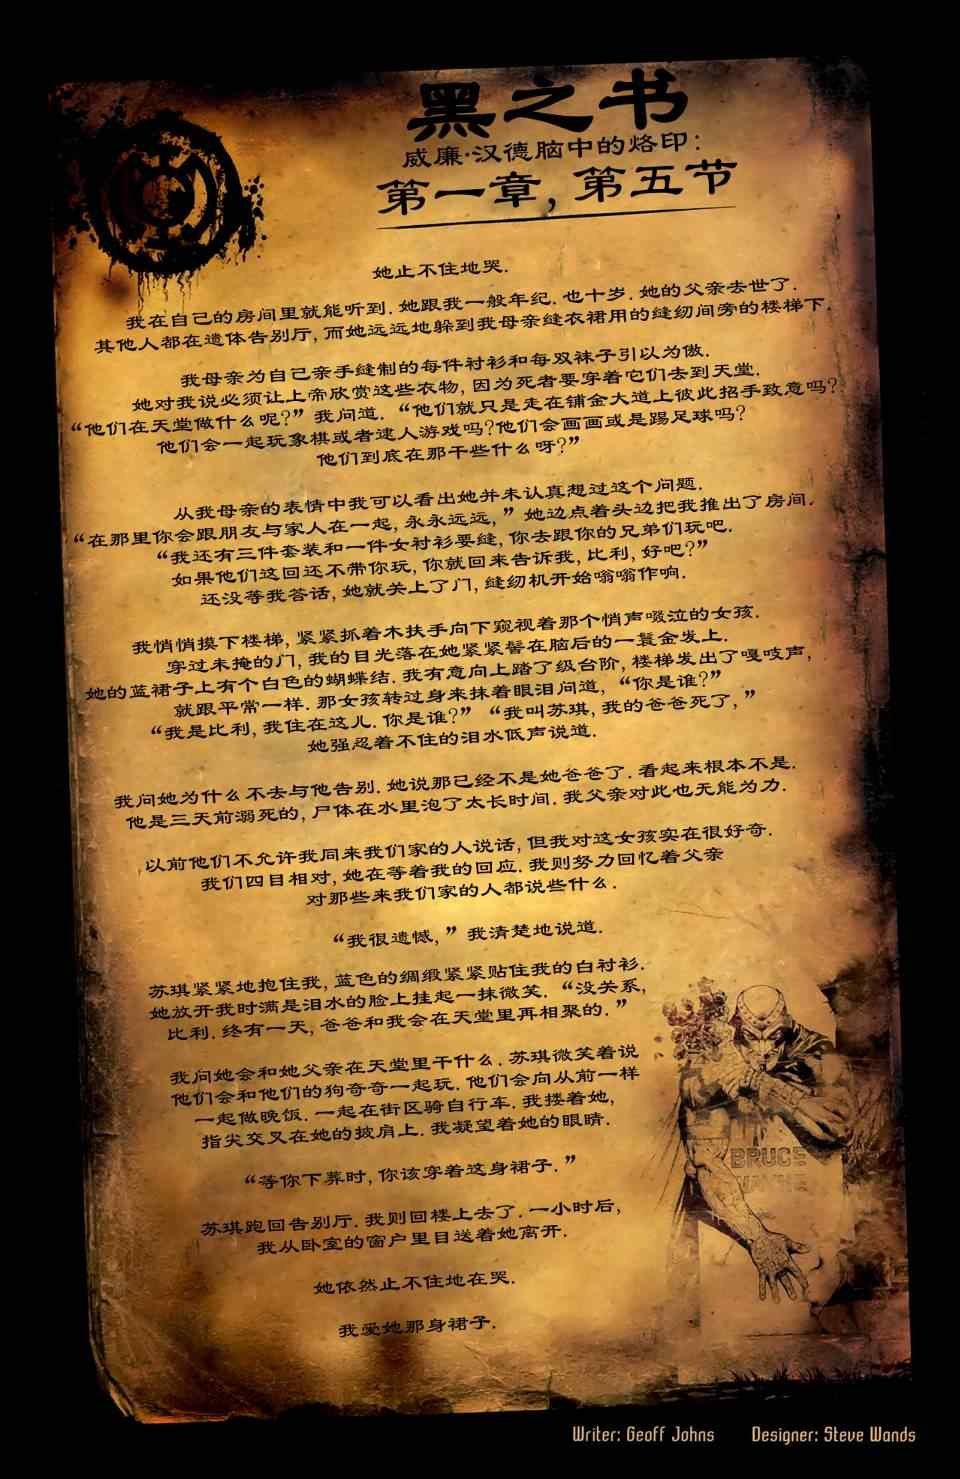 黑之书
威廉·汉德脑中的烙印：
第一章，第五节
她止不住地哭.
我在自己的房间里就能听到. 她跟我一般年纪. 也十岁. 她的父亲去世了.
其他人都在遗体告别厅, 而她远远地躲到我母亲缝衣裙用的缝纫间旁的楼梯下.
我母亲为自己亲手缝制的每件衬衫和每双袜子引以为傲.
她对我说必须让上帝欣赏这些衣物, 因为死者要穿着它们去到天堂.
“他们在天堂做什么呢?” 我问道. “他们就只是走在铺金大道上彼此招手致意吗?
他们会一起玩象棋或者逮人游戏吗?他们会画画或是踢足球吗?
他们到底在那干些什么呀?”
从我母亲的表情中我可以看出她并未认真想过这个问题.
“在那里你会跟朋友与家人在一起, 永永远远, ” 她边点着头边把我推出了房间.
“我还有三件套装和一件女衬衫要缝, 你去跟你的兄弟们玩吧.
如果他们这回还不带你玩, 你就回来告诉我, 比利, 好吧?”
还没等我答话, 她就关上了门, 缝纫机开始嗡嗡作响.
我悄悄摸下楼梯, 紧紧抓着木扶手向下窥视着那个悄声啜泣的女孩.
穿过未掩的门, 我的目光落在她紧紧髻在脑后的一鬟金发上.
她的蓝裙子上有个白色的蝴蝶结. 我有意向上踏了级台阶, 楼梯发出了嘎吱声,
就跟平常一样. 那女孩转过身来抹着眼泪问道, “你是谁?”
“我是比利, 我住在这儿. 你是谁?” “我叫苏琪, 我的爸爸死了, ”
她强忍着不住的泪水低声说道.
我问她为什么不去与他告别. 她说那已经不是她爸爸了. 看起来根本不是.
他是三天前溺死的, 尸体在水里泡了太长时间. 我父亲对此也无能为力.
以前他们不允许我同来我们家的人说话, 但我对这女孩实在很好奇.
我们四目相对, 她在等着我的回应. 我则努力回忆着父亲
对那些来我们家的人都说些什么.
“我很遗憾, ” 我清楚地说道.
苏琪紧紧地抱住我, 蓝色的绸缎紧紧贴住我的白衬衫.
她放开我时满是泪水的脸上挂起一抹微笑. “没关系,
比利. 终有一天, 爸爸和我会在天堂里再相聚的. ”
我问她会和她父亲在天堂里干什么. 苏琪微笑着说
他们会和他们的狗奇奇一起玩. 他们会向从前一样
一起做晚饭. 一起在街区骑自行车. 我搂着她,
指尖交叉在她的披肩上. 我凝望着她的眼睛.
“等你下葬时, 你该穿着这身裙子. ”
苏琪跑回告别厅. 我则回楼上去了. 一小时后,
我从卧室的窗户里目送着她离开.
她依然止不住地在哭.
我爱她那身裙子.
BRUCE
WAYNE
Writer: Geoff Johns Designer: Steve Wands